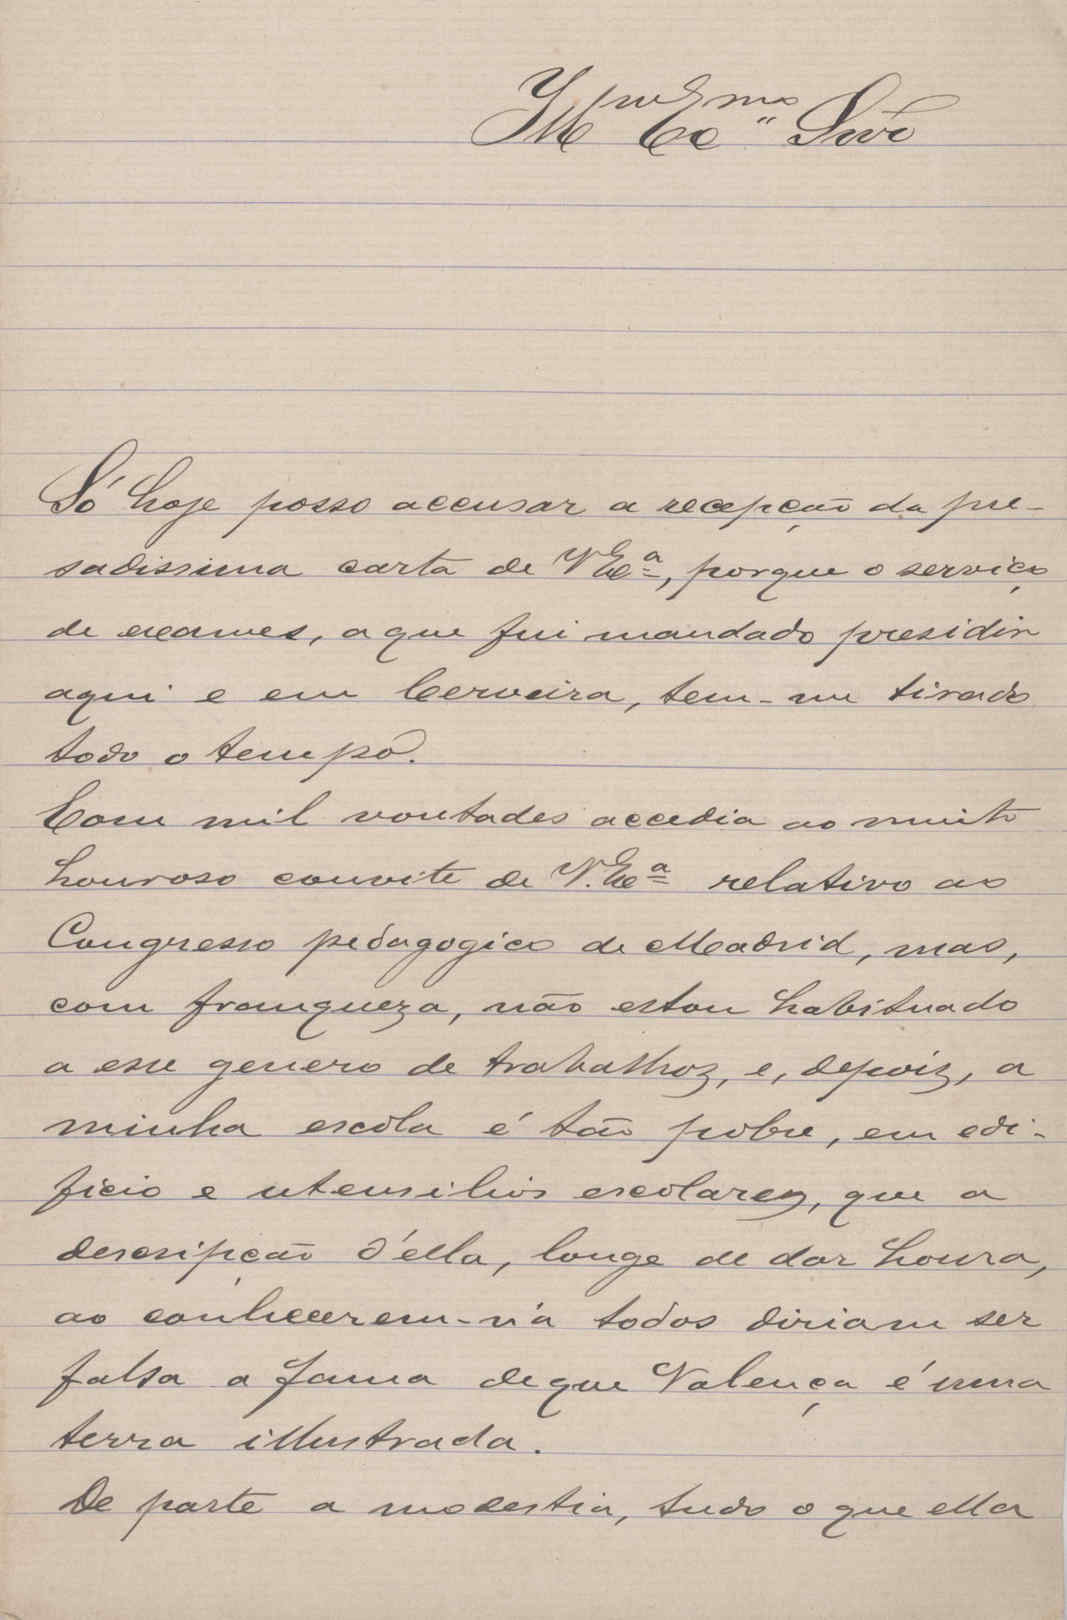 Ill.mo Ex.mo Snr.
Só hoje posso accusar a recepção da pre-
sadissima carta de V Ex.ª, porque o serviço
de exames, a que fui mandado presidir
aqui e em Cerveira, tem-me tirado
todo o tempo.
Com mil vontades accedia ao muito
honroso convite de V. Ex.ª relativo ao
Congresso pedagogico de Madrid, mas,
com franqueza, não estou habituado
a esse genero de trabalhoz, e, depoiz, a
minha escola é tão pobre, em edi-
ficio e utensilios escolarez, que a
descripção d'ella, longe de dar honra,
ao conhecerem-n'a todos diriam ser
falsa a fama de que Valença é uma
terra illustrada.
De parte a modestia, tudo o que ella